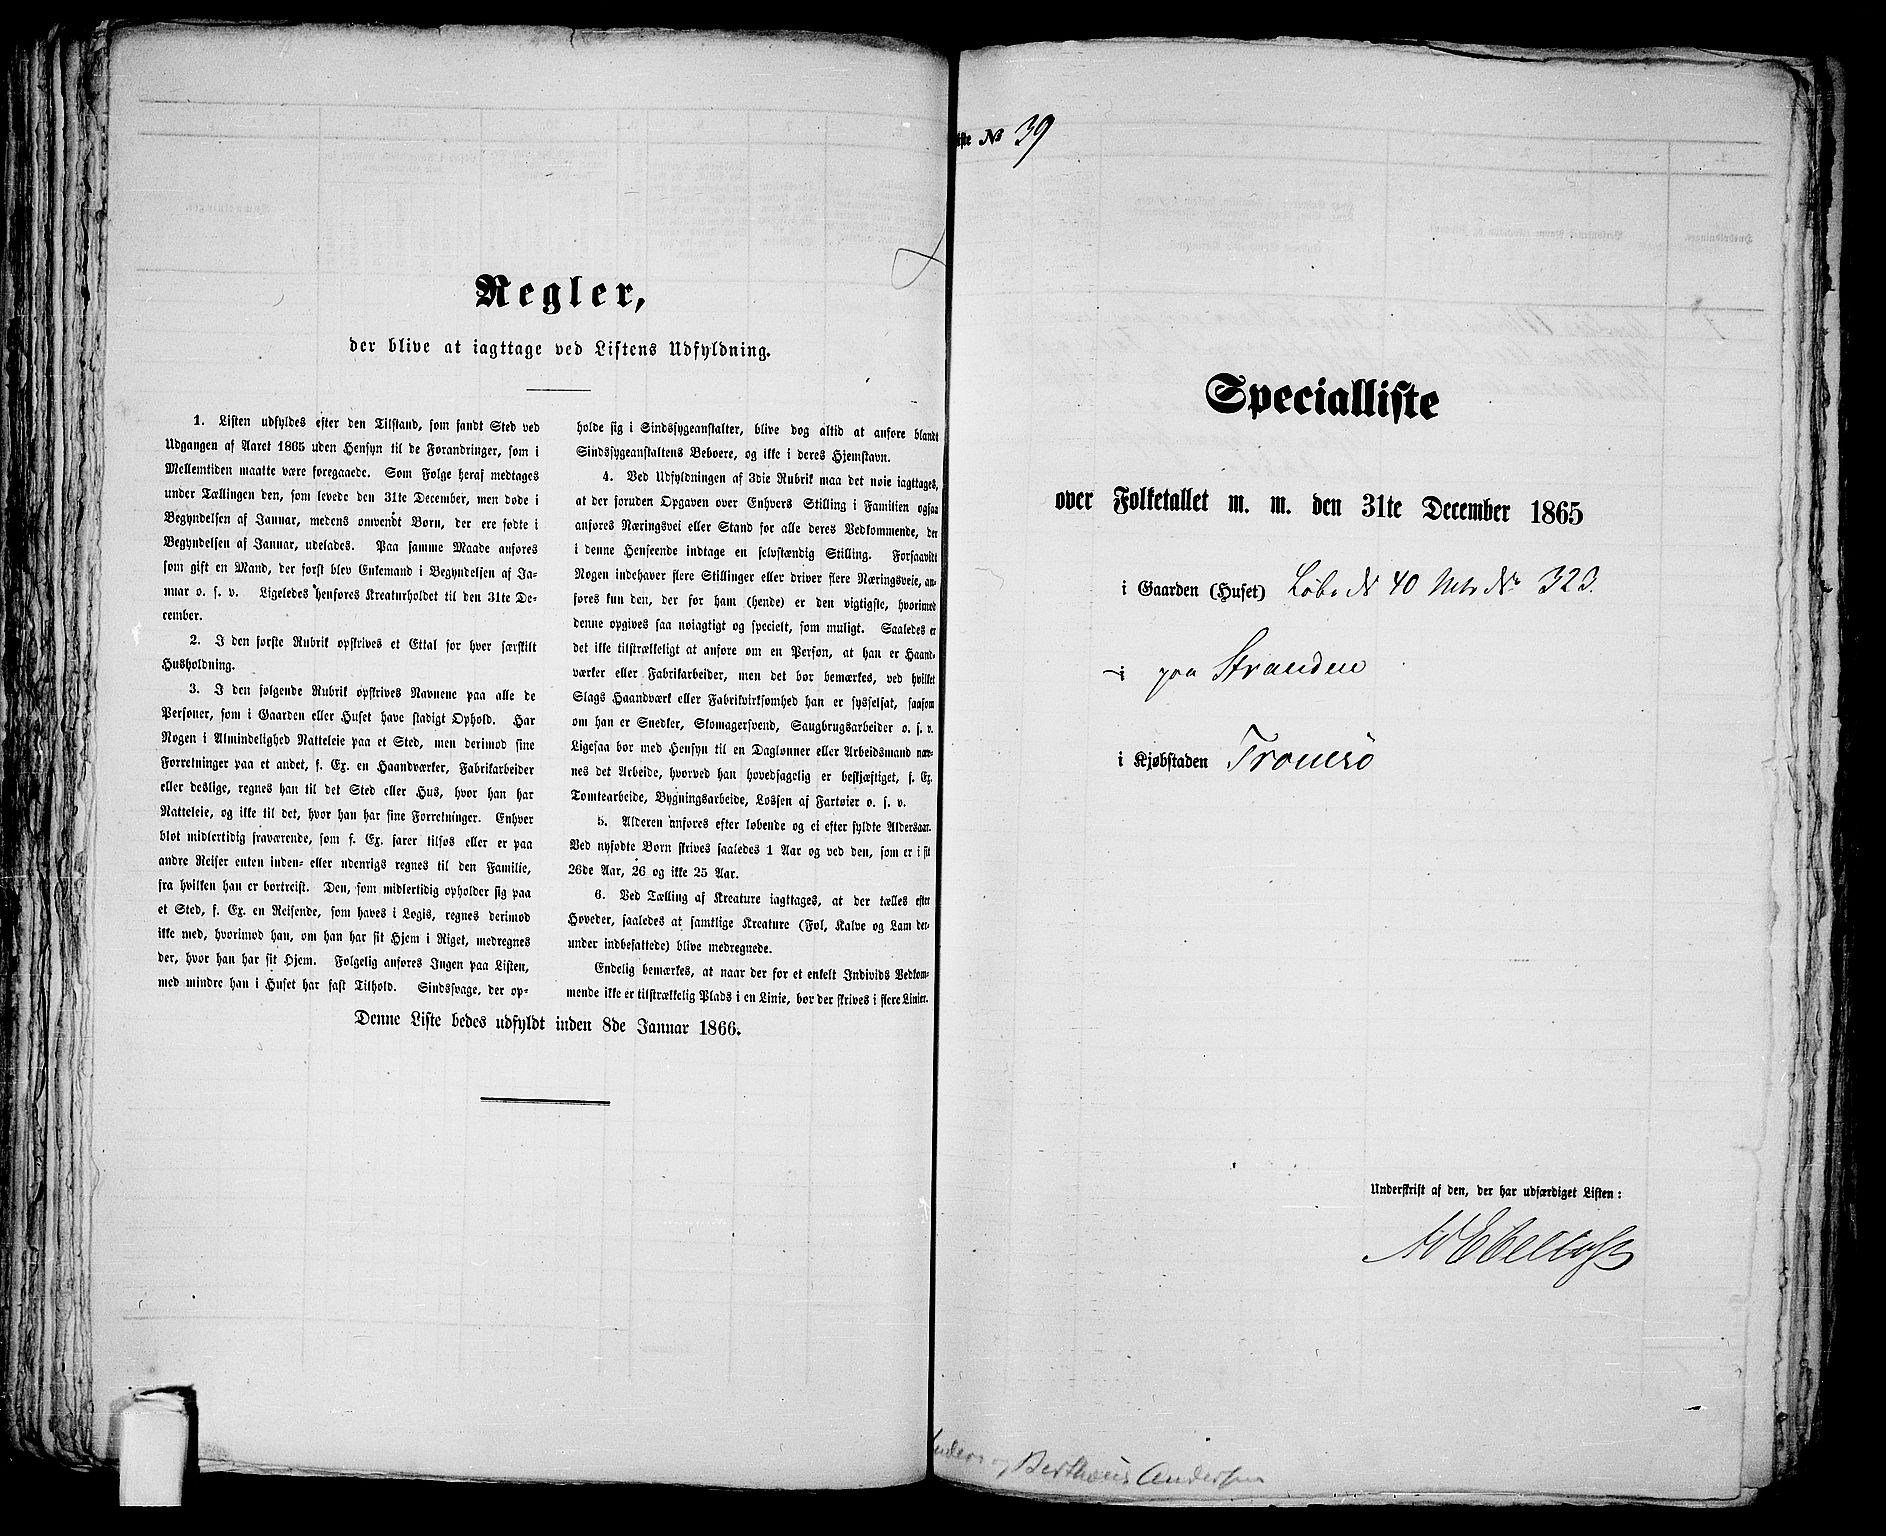 Regler,
der blive at iagttage ved Listens Udfyldning.
1. Listen udfyldes efter den Tilstand, som fandt Sted ved
Udgangen af Aaret 1865 uden Hensyn til de Forandringer, som i
Mellemtiden maatte være foregaaede. Som Følge heraf medtages
under Tællingen den, som levede den 31te December, men døde i
Begyndelsen af Januar, medens omvendt Børn, der ere fødte i
Begyndelsen af Januar, udelades. Paa samme Maade anføres
som gift en Mand, der først blev Enkemand i Begyndelsen af Ja-
nuar o. s. v. Ligeledes henføres Kreaturholdet til den 31te De-
cember.
2. I den første Rubrik opskrives et Ettal for hver særskilt
Husholdning.
3. I den følgende Rubrik opskrives Navnene paa alle de
Personer, som i Gaarden eller Huset have stadigt Ophold. Har
Nogen i Almindelighed Natteleie paa et Sted, men derimod sine
Forretninger paa et andet, f. Ex. en Haandværker, Fabrikarbeider
eller deslige, regnes han til det Sted eller Hus, hvor han har
Natteleie, og ikke til det, hvor han har sine Forretninger. Enhver
blot midlertidig fraværende, som f. Ex. farer tilsøs eller er paa
andre Reiser enten inden- eller udenrigs regnes til den Familie,
fra hvilken han er bortreist. Den, som midlertidig opholder sig paa
et Sted, f. Ex. en Reisende, som haves i Logis, regnes derimod
ikke med, hvorimod han, om han har sit Hjem i Riget, medregnes
der, hvor han har sit Hjem. Følgelig anføres Ingen paa Listen,
med mindre han i Huset har fast Tilhold. Sindssvage, der op-
holde sig i Sindssygeanstalter, blive dog altid at anføre blandt
Sindssygeanstaltens Beboere, og ikke i deres Hjemstavn.
4. Ved Udfyldningen af 3die Rubrik maa det nøie iagttages,
at der foruden Opgaven over Enhvers Stilling i Familien ogsaa
anføres Næringsvei eller Stand for alle deres Vedkommende, der
i denne Henseende indtage en selvstændig Stilling. Forsaavidt
Nogen indehaver flere Stillinger eller driver flere Næringsveie, an-
føres kun den, der for ham (hende) er den vigtigste, hvorimod
denne opgives saa nøiagtigt og specielt, som muligt. Saaledes er
det ikke tilstrækkeligt at anføre om en Person, at han er Haand-
værker eller Fabrikarbeider, men det bør bemærkes, ved hvilket
Slags Haandværk eller Fabrikvirksomhed han er sysselsat, saasom
om han er Snedker, Skomagersvend, Saugbrugsarbeider o. s. v.
Ligesaa bør med Hensyn til en Dagløner eller Arbeidsmand næv-
nes det Arbeide, hvorved han hovedsagelig er beskjæftiget, f. Ex.
Tomtearbeide, Bygningsarbeide, Lossen af Fartøier o. s. v.
5. Alderen anføres efter løbende og ei efter fyldte Aldersaar.
Ved nyfødte Børn skrives saaledes 1 Aar og ved den, som er i sit
26de Aar, 26 og ikke 25 Aar.
6. Ved Tælling af Kreature iagttages, at der tælles efter
Hoveder, saaledes at samtlige Kreature (Føl, Kalve og Lam der-
under indbefattede) blive medregnede.
Endelig bemærkes, at naar der for et enkelt Individs Vedkom-
mende ikke er tilstrækkelig Plads i en Linie, bør der skrives i flere Linier.
Denne Liste bedes udfyldt inden 8de Januar 1866.
iste № 39
Specialliste
over Folketallet m. m. den 31te December 1865
i Gaarden (Huset) Løbe № 40 Mtr № 323.
i paa Stranden
i Kjøbstaden Tromsö
Underskrift af den, der har udfærdiget Listen:
og Bertheus Andersen